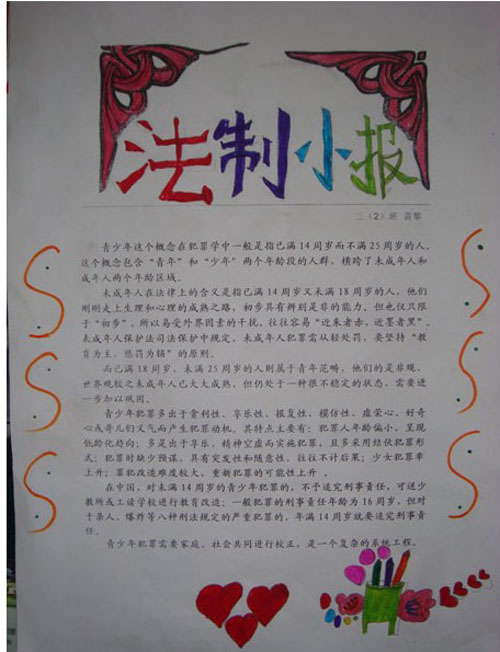 法制小报
三（2）班
青少年这个概念在犯罪学中一般是指已满14周岁而不满25周岁的人，
这个概念包含“青年”和“少年”两个年龄段的人群，横跨了未成年人和
成年人两个年龄区域。
未成年人在法律上的含义是指已满14周岁又未满18周岁的人，他们
刚刚走上生理和心理的成熟之路，初步具有辨别是非的能力，但也仅只限
于“初步”，所以易受外界因素的干扰，往往容易“近朱者赤，近墨者黑”。
未成年人保护法司法保护中规定，未成年人犯罪需从轻处罚，要坚持“教
育为主，惩罚为辅”的原则。
而已满18周岁，未满25周岁的人则属于青年范畴，他们的是非观、
世界观较之未成年人已大大成熟，但仍处于一种很不稳定的状态，需要进
一步加以巩固。
青少年犯罪多出于贪利性、享乐性、报复性、模仿性、虚荣心、好奇
心或哥儿们义气而产生犯罪动机，其特点主要有：犯罪人年龄偏小，呈现
低龄化趋向；多是出于享乐、精神空虚而实施犯罪，且多采用结伙犯罪形
式；犯罪时缺少预谋，具有突发性和随意性，往往不计后果；少女犯罪率
上升；罪犯改造难度较大，重新犯罪的可能性上升。
在中国，对未满14周岁的青少年犯罪的，不予追究刑事责任，可送少
教所或工读学校进行教育改造；一般犯罪的刑事责任年龄为16周岁，但对
于杀人、爆炸等八种刑法规定的严重犯罪的，年满14周岁就要追究刑事责
任。
青少年犯罪需要家庭、社会共同进行校正，是一个复杂的系统工程。